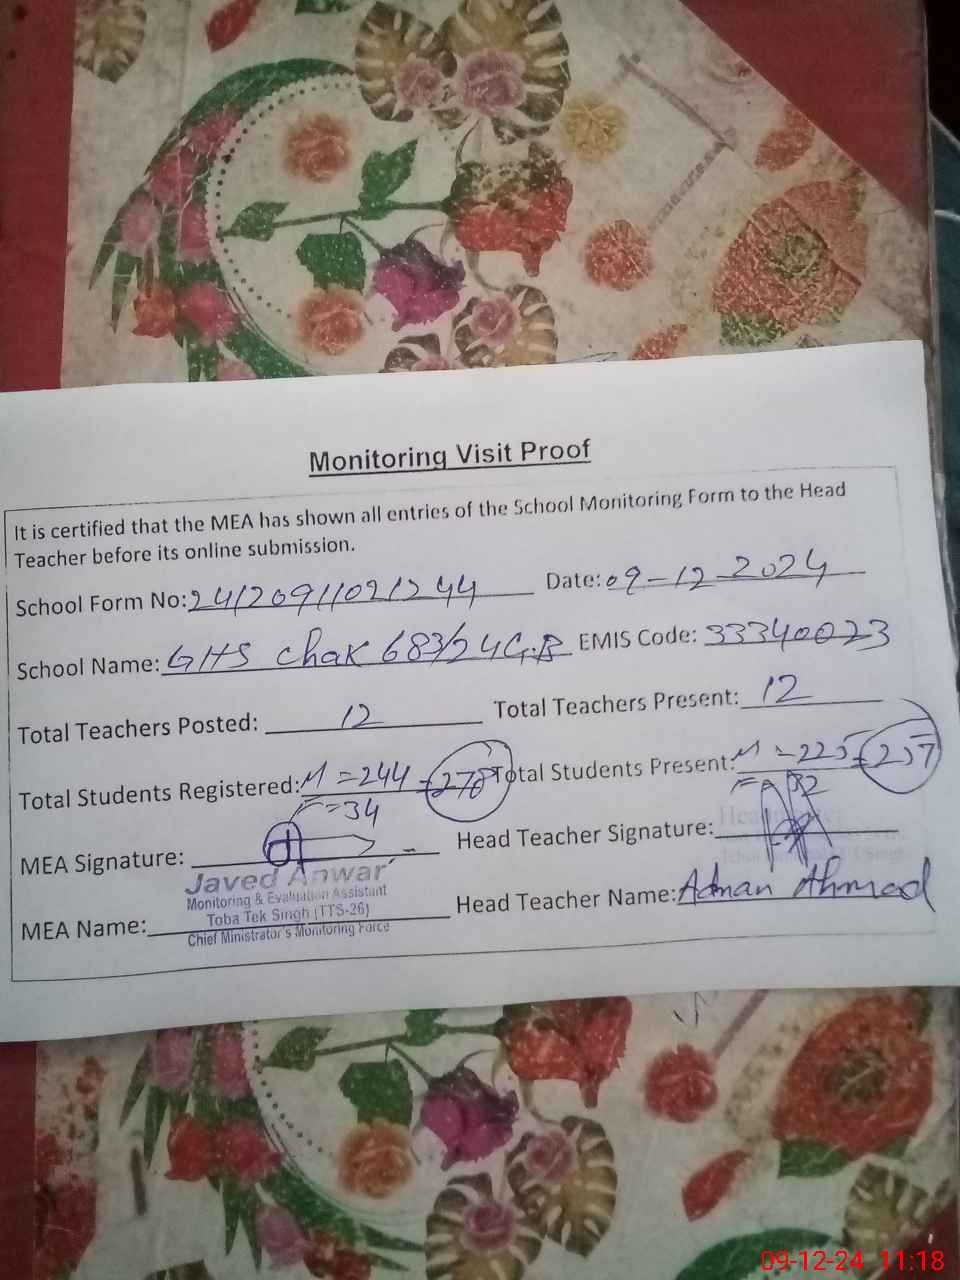 Monitoring Visit Proof
It is certified that the MEA has shown all entries of the School Monitoring Form to the Head
Teacher before its online submission.
School Form No: 241209110921244 Date: 09-12-2024
School Name: GHS Chak 683/24 G.B EMIS Code: 33340023
Total Teachers Posted: 12 Total Teachers Present: 12
Total Students Registered: M = 244 = 278 Total Students Present: M = 225 = 257
F = 34 F = 32
MEA Signature: Head Teacher Signature:
Javed Anwar
Monitoring & Evaluation Assistant
Toba Tek Singh (TTS-26)
Chief Ministrator's Monitoring Force
MEA Name: Head Teacher Name: Adnan Ahmad
09-12-24 11:18